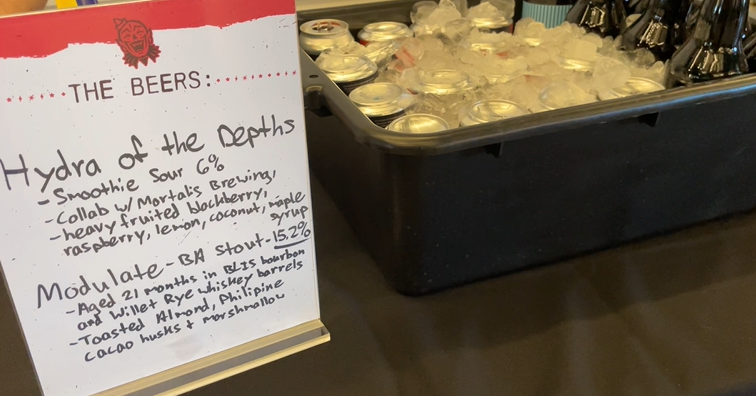 THE BEERS:
Hydra of the Depths
- Smoothie Sour 6%
- Collab w/ Mortalis Brewing,
- heavy fruited blackberry,
raspberry, lemon, coconut, maple
syrup
Modulate - BA Stout - 15.2%
- Aged 21 months in BLIS bourbon
and Willet Rye whiskey barrels
- Toasted Almond, Philipine
cacao husks + marshmallow